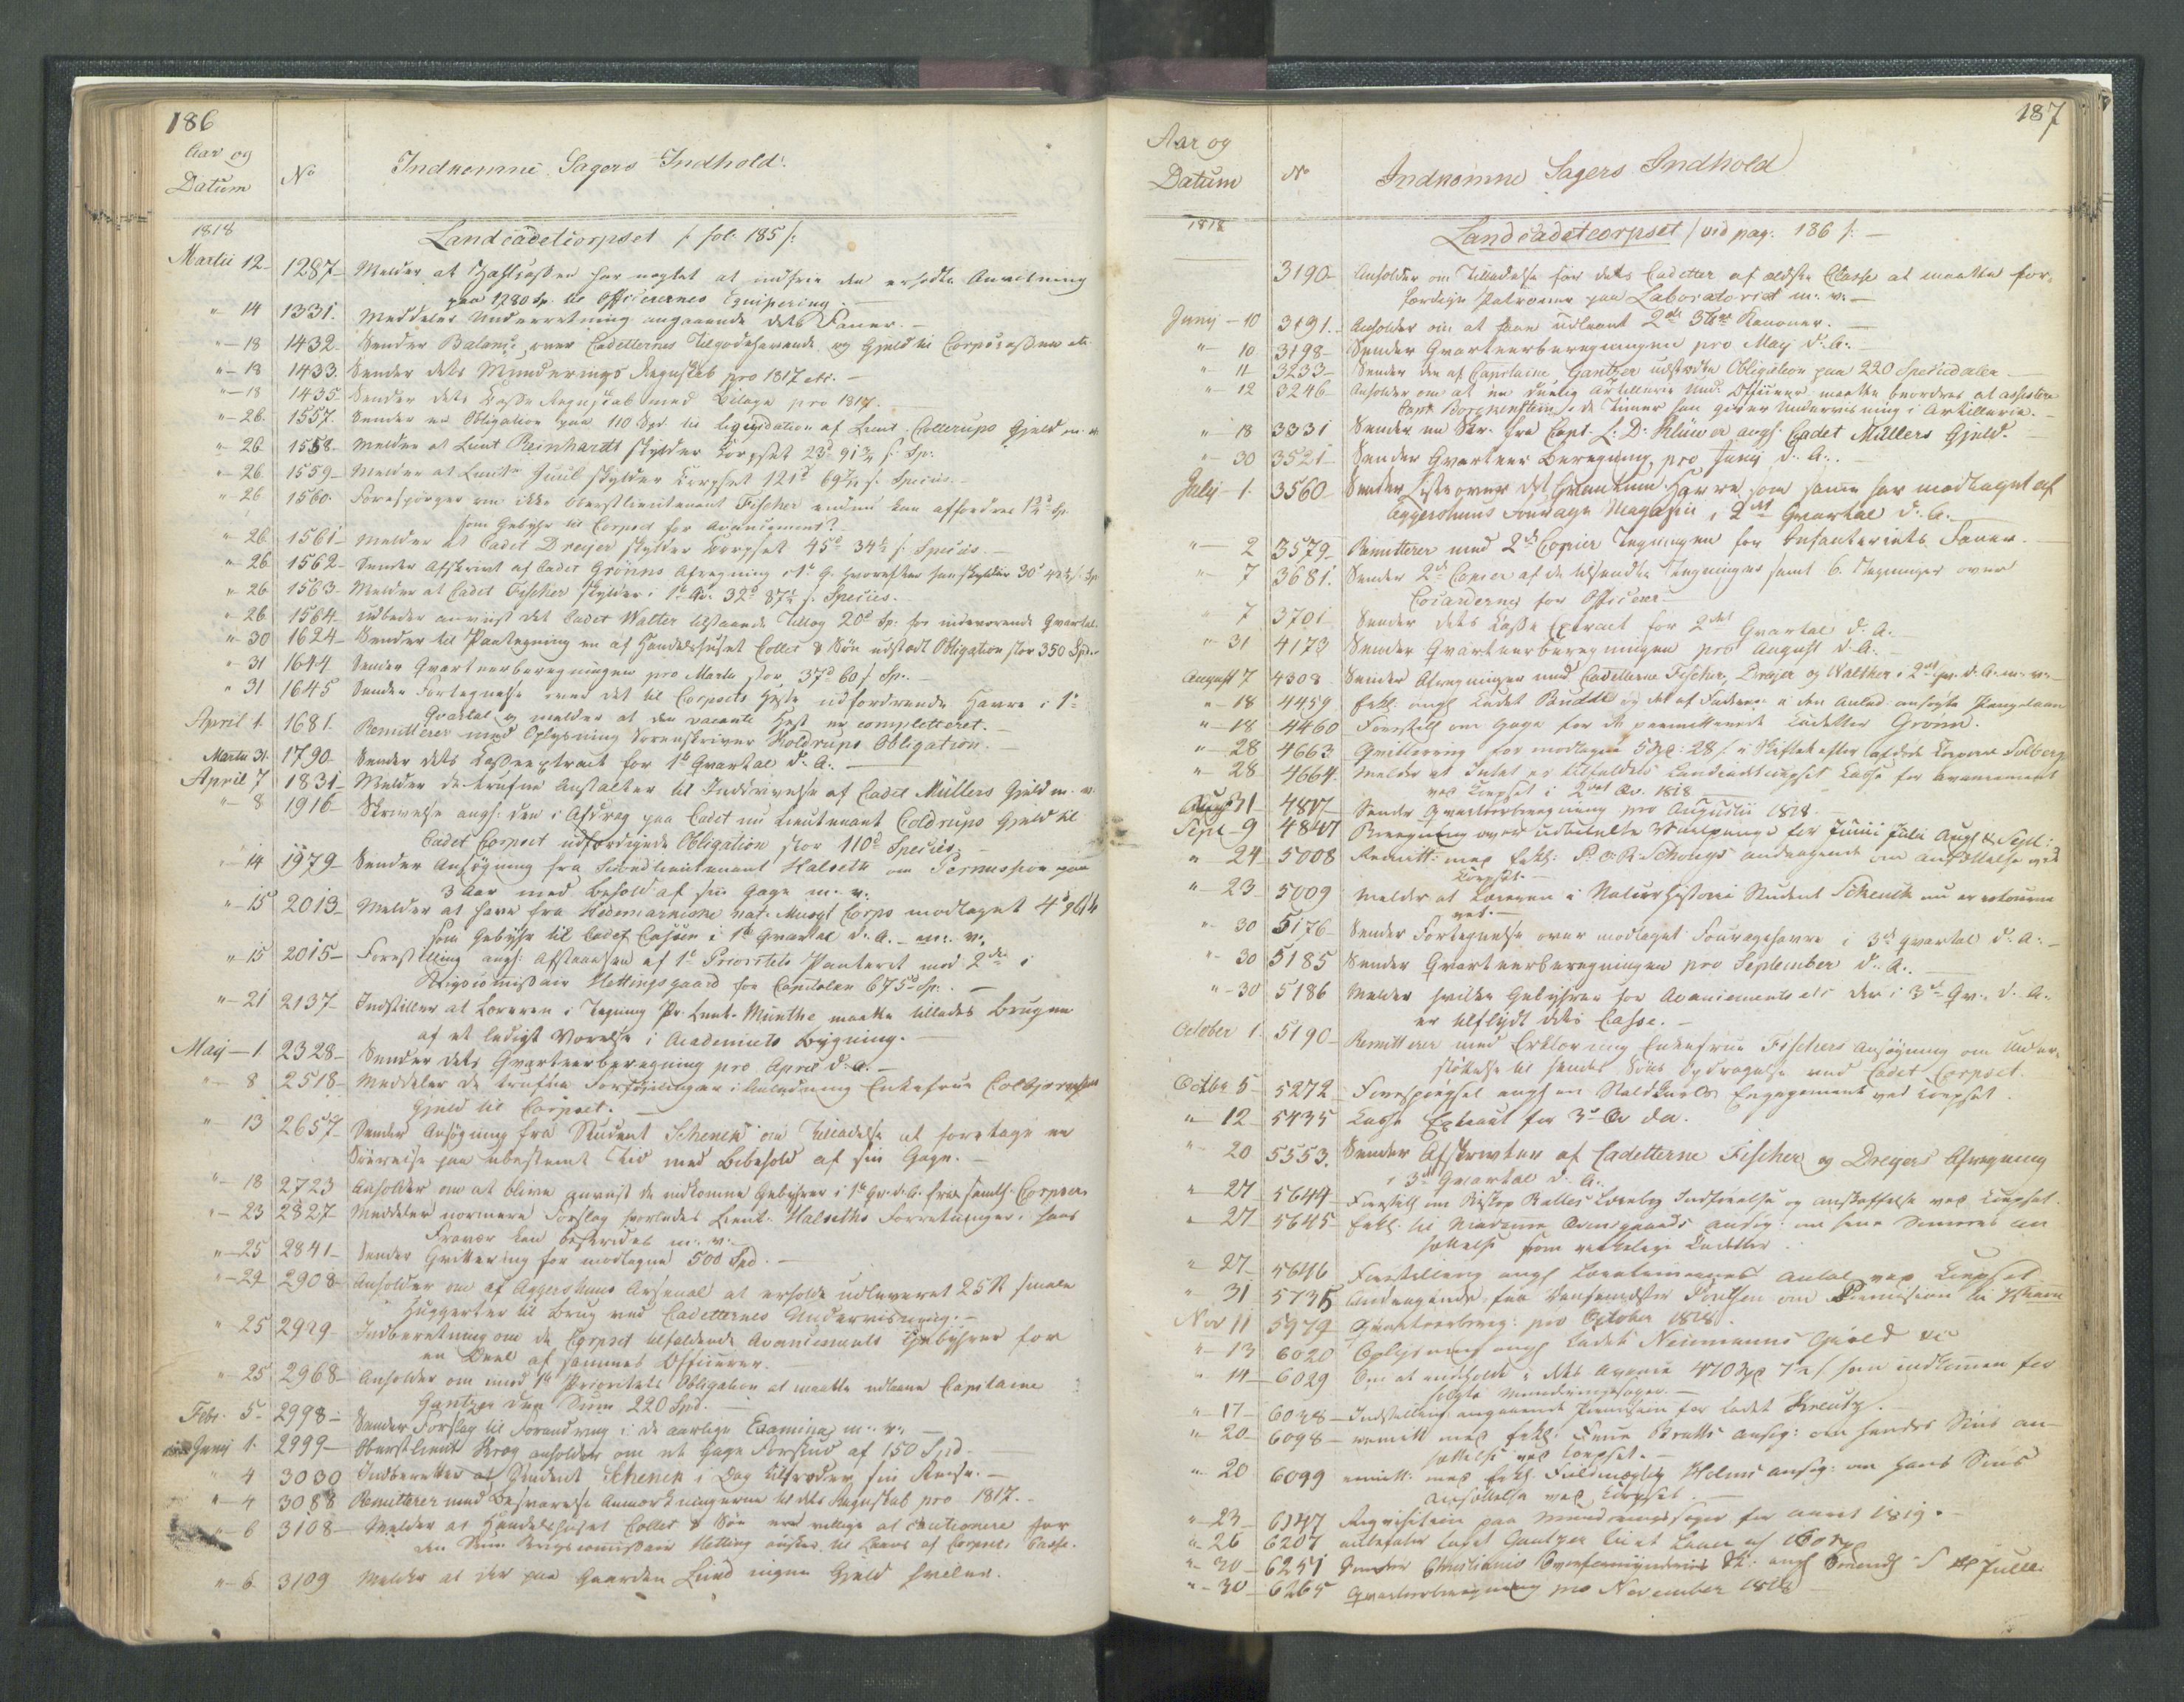 186
Aar og
Datum
No
Indkomne Sagers Indhold.
1818
Landcadetcorpset /: fol. 185 /:
Martii 12 1287 Melder at Hafkassen har nægtet at indfrie den erholdte Anvisning
paa 1780 Sp. til Officierernes Equipering.
" 14 1331. Meddeler Underretning angaaende dets Faner.
" 18 1432 Sender Balance over Cadetternes Tilgodehavende og Gjeld til Corpscassen etc.
" 18 1433. Sender dets Munderings Regnskab pro 1817 etc.
" 18 1435 Sender dets Casse Regnskab med Bilage pro 1817.
" 26 1557. Sender en Obligation paa 110 Spd. til liqvidation af Lieut. Collerups Gjeld m. v.
" 26 1558 Melder at Lieut Reinhardt skylder Corpset 23d 91¾ s. Sp.
" 26 1559 Melder at Juul skylder Corpset 121d s. Species.
" 26 1560. Forespörger om ikke Oberstlieutenant Fischer endnu kan affordres 12d Sp.
som Gebyhr til Corpset for Avancement?
" 26 1561 Melder at Cadet Dreyer skylder Corpset 45d 34½ s. Species.
" 26 1562 Sender Afskrivt af Cadet Grönns Afregning i 1te Q. hvorefter han skylder 30d Sp
" 26 1563 Melder at Cadet Fischer skylder i 1te Qv. 32d 87½ s. Species.
" 26 1564 udbeder anviist det Cadet Walter tilstaaede Tillæg 20d Sp. for indeværende Qvartal.
" 30 1624 Sender til Paategning en af Handelshuset Collet & Sön udstædt Obligation stor 350 Spd.
" 31 1644 Sender Qvarteerberegningen pro Marts stor 37d 60 s Sp.
" 31 1645 Sender Fortegnelse over det til Corpsets Heste udfordrende Havre i 1te
Qvartal og melder at den vacante Hest er completteret.
April 1. 1681. Remitterer med Oplysning Sorenskriver Koldrups Obligation.
Martii 31. 1790 Sender dets Casseextract for 1te Qvartal d. A.
April 7 1831 Melder de trufne Anstalter til Inddrivelse af Cadet Müllers Gjeld m. v.
" 8 1916 Skrivelse angl: den i Afdrag paa Cadet nu Lieutenant Coldrups Gjeld til
Cadet Corpset udfærdigede Obligation stor 110d Species.
" 14 1979 Sender Ansögning fra Lieutenant Halseth om Permission paa
3 Aar med Behold af sin Gage m. v.
" 15 2013 Melder at have fra Hedemarkske nat. Musqt Corps modtaget 4d
som Gebyhr til Cadet Cassen i 1te Qvartal d. A. m. v.
" 15 2015 Forestilling angl: Afstaaelsen af 1te Prioritets Panteret mod 2den i
Krigscommissair Hettingsgaard for Capitalen 675d Sp.
" 21 2137 Indstiller at Læreren i Tegning Pr. Lieut. Münthe maatte tillades Brugen
af et ledigt Værelse i Academiets Bygning.
Maij 1 2328 Sender dets Qvarteerberegning pro April d. A.
" 8 2518 Meddeler de trufne Forföininger i Anledning Enkefrue Colbjørnsens
Gjeld til Corpset.
" 13 2657 Sender Ansögning fra Student Schenck om Tilladelse at foretage en
Reise paa ubestemt Tid med Bibehold af sin Gage.
" 18 2723 Anholder om at blive anvist de indkomne Gebyhrer i 1te Qv. d. A. fra samtl: Corpser.
" 23 2827 Meddeler nærmere Forslag hvorledes Lieut. Halseths Forretninger, hans
Fravær kan bestrides m. v.
" 25 2841 Sender Qvittering for modtagne 500 Spd.
" 24 2908 Anholder om af Aggershuus Arsenal at erholde udleveret 25 St smale
Huggerter til Brug ved Cadetternes Underviisning.
" 25 2929 Indberetning om de Corpset tilfaldende Avancements Gebyhrer for
en Deel af sammes Officierer.
" 25 2968 Anholder om imod 1te Prioritets Obligation at maatte udlaane Capitaine
Gantzer den Sum 220 Spd.
Febr. 5. 2998 Sender Forslag til Forandring i de aarlige Examina m. v.
Junij 1. 2999 Oberstlieut Krag anholder om et Gage Forskud af 150 Spd.
" 4 3030 Indberetter at Student Schenck i Dag tiltræder sin Reise.
" 4 3088 Remitterer med Besvarelse Anmærkningerne til dets Regnskab pro 1817.
" 6 3108 Melder at Handelshuset Collet & Sön ere villige at cautionere for
den Sum Krigscommissair Hetting önsker til Laans af Corpsets Casse.
" 6. 3109 Melder at der paa Gaarden Lund ingen Gjeld hviler.
187
Aar og
Datum
No
Indkomne Sagers Indhold
1818
Landcadetcorpset /: vid pag. 186 /:
3190 Anholder om Tilladelse for dets Cadetter af ældste Classe at maatte for-
færdige Patroner paa Laboratoriet m. v.
Junij 10 3191. Anholder om at faae udlaant 2de 3℔ge Kanoner.
" 10 3198 Sender Qvarteerberegningen pro Maij d. A.
" 11 3233 Sender den af Capitaine Gantzer udstædte Obligation paa 220 Speciedaler.
" 12 3246 Anholder om at en duelig Artillerie Und. Officier maatte beordres at assistere
Capt Borgenstein, de Timer han giver Underviisning i Artillerie.
" 18 3331 Sender en Skr. fra Capt. L. D. Klüwer angl. Cadet Müllers Gjeld.
" 30 3521 Sender Qvarteer Beregning pro Junij d. A.
Julij 1. 3560 Sender Liste over det Qvantum Havre som samme har modtaget af
Aggershuus Fourage Magazin i 2det Qvartal d. A.
" 2 3579 Remitterer med 2de Copier Tegningen for Infanteriets Faner.
" 7 3681. Sender 2de Copier af de tilsendte Tegninger samt 6. Tegninger over
Cocarderne for Officierer
7 3701 Sender dets Casse Extract for 2det Qvartal d. A.
" 31 4173 Sender Qvarteerberegningen pro August d. A.
August 7 4308 Sender Afregninger med Cadetterne Fischer, Dreyer og Walther i 2det qv. d. A. m. v.
" 18 4459. Erkl. angl Cadet Budde og det af Faderen i den Anled. ansögte Pengelaan
" 18 4460 Forestill om Gage for de permitterede Cadetter Grönn.
" 28 4663 Qvittering for modtagne 5 Spd: 28 s. i Skiftet efter afdöde Solberg
" 28 4664. Melder at Intet er tilfaldet Landcadetcorpset Casse for Avancement
ved Corpset i 2det Qv. 1818
Aug 31 4817 Sender Qvarteerberegning pro Augustii 1818.
Sept 9 4847 Beregning over udbetalte for Junii Julii Augt & Septl:
" 24 5008 Remitt: med Erkl: P. C. R. Schougs andragende om ansættelse ved
Corpset.
" 23 5009 Melder at Læreren i Naturhistorie Student Schenck nu er retourne
ret.
" 30 5176 Sender Fortegnelse over modtaget Fouragehavre i 3die Qvartal d. A.
" 30 5185 Sender Qvarteerberegningen pro September d. A.
" 30 5186 Melder hvilke Gebyhrer for Avancements etc der i 3die Qv. d. A.
er tilflydt dets Casse.
October 1. 5190 Remitterer med Erklæring Enkefrue Fischers Ansögning om Under-
stöttelse til hendes Söns Opdragelse ved Cadet Corpset.
Octbr 5 5272 Forespörgsel angl en Staldkarls Engagement ved Corpset.
" 12 5435 Casse Extract for 3die Qv d. A.
" 20 5553. Sender Afskrivter af Cadetterne Fischer og Dreyers Afregning
i 3die Qvartal d. A.
" 27 5644 Forestill om Biskop Balles Lærebog Indförelse og anskaffelse ved Corpset.
" 27 5645 Erkl. til Madame ansög: om sine Sönners an
sættelse som virkelige Cadetter.
" 27 5646 Forestilling angl Antal ved Corpset
" 31 5735 Andragende fra Poulsen om Permission til
Nov 11 5979 Qvarteerbereg: pro October 1818.
" 13 6020 Oplysning angl Cadet Neumanns Gield etc
" 14 6029 Om at indholde i dets Avance 470 Spd 7½ s som indkommen for
solgte Munderingssager.
" 17 6048 Indstilling angaaende Pension for Cadet Kreutz.
" 20 6098 remitt med Erkl: Frue Bratts ansög: om hendes Söns an-
sættelse ved Corpset.
" 20 6099 remitt: med Erkl. Fuldmægtig Holms ansög: om hans Söns
Ansættelse ved Corpset.
" 23 6147 Reqvisition paa Munderingssager for aaret 1819.
" 26 6207 anbefaler Capt Gantzer til et Laan af
" 30 6251 Sender Christiania Overformynderies Sk: angl
" 30 6265 Qvarteerberegning pro November 1818